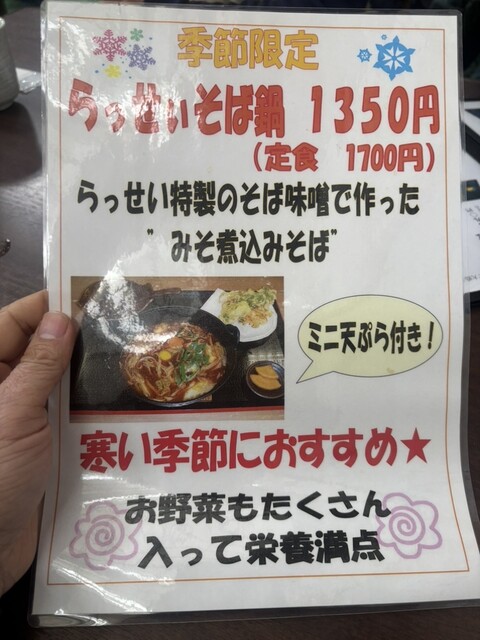 季節限定
らっせぃそば鍋 1350円
（定食 1700円）
らっせい特製のそば味噌で作った
"みそ煮込みそば"
ミニ天ぷら付き！
寒い季節におすすめ★
お野菜もたくさん
入って栄養満点